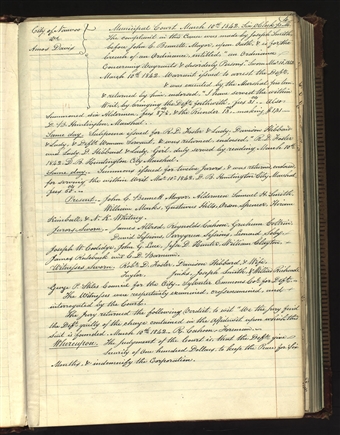 City of Nauvoo Municipal Court March 10th 1842
vs The complaint in the Cause was made by Joseph Smith
Amos Davis before John C. Bennett Mayor, upon Oath, & is for the
breach of an Ordinance, entitled "an Ordinance
Concerning Vagrants & disorderly Persons"
March 10th 1842. Warrant issued to arrest the Deft.
& was executed by the Marshal, for him
& returned by him indorsed, "I have served the within
Writ, by bringing the Deft. forthwith.
Summoned six Aldermen, & the Mayor
D. B. Huntington, Marshal.
Same day. Subpoena issued for R. D. Foster & Lady, Davison Hibbard
& Lady & was returned, indorsed, R. D. Foster
and Lady, D. Hibbard & Lady, duly served by reading March 10th
1842. D. B. Huntington City Marshal.
Same day. Summons issued for twelve Jurors, & was return indorsed
for serving the within Writ March 10th 1842. D. B. Huntington City Marshal
Present. John C. Bennett Mayor. Aldermen Samuel H. Smith,
William Marks, Gustavus Hills, Orson Spencer, Hiram
Kimball, & N. K. Whitney.
Jurors Sworn. James Allred, Reynolds Cahoon, Graham Coltrin
Joseph W. Coolidge, John D. Hunter, William Clayton
James Robinson
Witnesses Sworn. Robt. D. Foster, Davison Hibbard, & Wife,
Taylor, Joseph Smith, & William Richard
George P. Stiles Council for the City. Sylvester Emmons Col. for Deft.
The Witnesses were respectively examined, & and
interrogated by the Court.
The Jury returned the following Verdict, to wit "We the jury find
the Deft. guilty of the charge contained in the affidavit upon which the
suit is founded. March 10th 1842. R. Cahoon, Foreman.
Whereupon, The judgment of the Court is that the Deft. give
Surety of One hundred Dollars, to keep the Peace for Six
Months, & indemnify the Corporation.